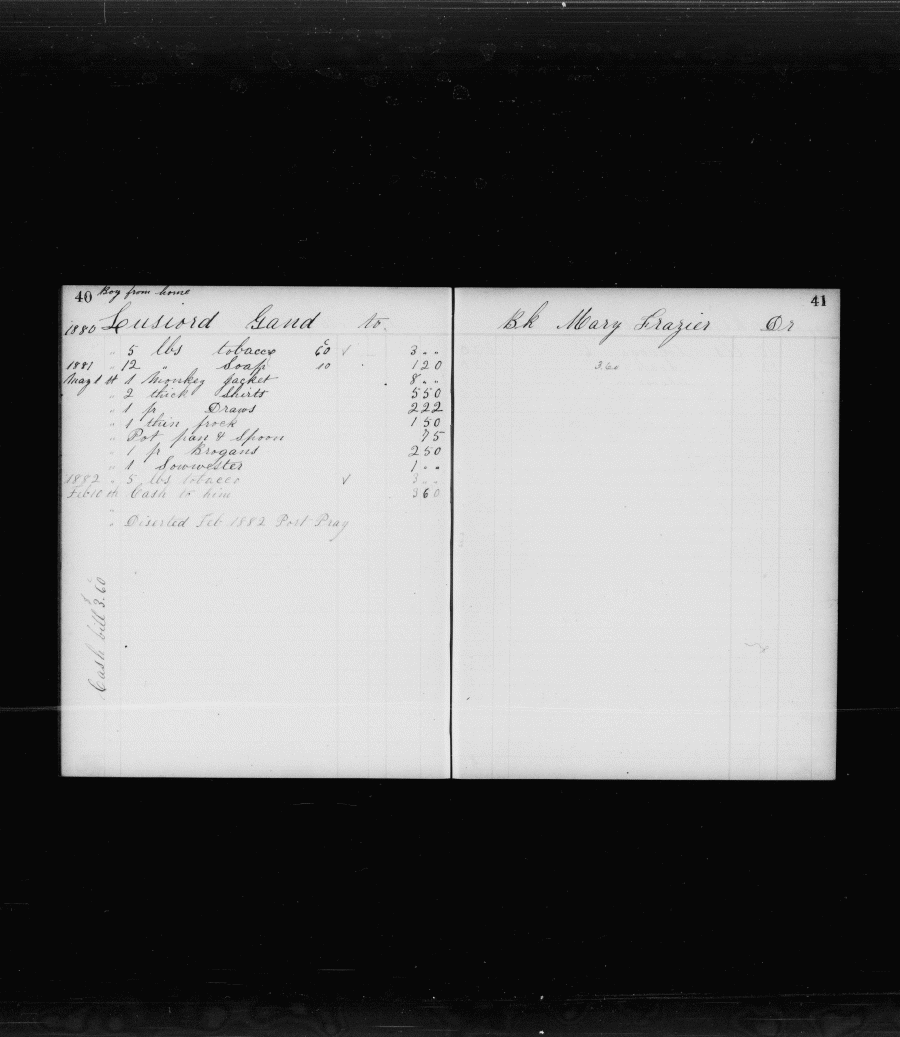 40 Boy from home
1880 Lusiord Gand to.
" 5 lbs tobacco 60 3 " "
1881 " 12 " Soap 10 1 20
May 1st 1 Monkey Jacket 8 " "
" 2 thick Shirts 5 50
" 1 pr Draws 2 22
" 1 thin frock 1 50
" Pot pan & Spoon 75
" 1 pr Brogans 2 50
" 1 Sowwester 1 " "
1882 " 5 lbs tobacco 3 " "
Feb 10 th Cash to him 3 60
" Diserted Feb 1882 Port Pray
Cash bill 3.60
41
Bk Mary Frazier Dr
3.60